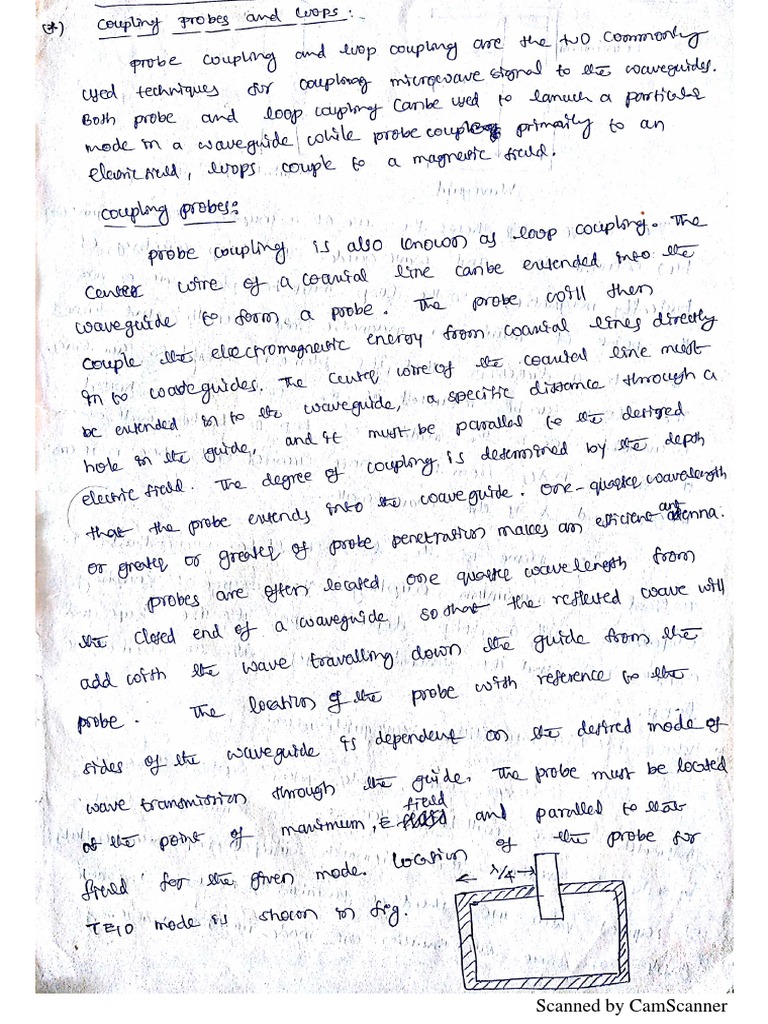 (*) Coupling probes and Loops :
probe coupling and loop coupling are the two commonly
used techniques for coupling microwave signal to the waveguides.
Both probe and loop coupling can be used to lanuch a particular
mode in a waveguide while probe coupling primarily to an
electric field, loops couple to a magnetic field.
Coupling probes:
probe coupling is also known as loop coupling. The
center wire of a coaxial line can be extended into the
waveguide to form a probe. The probe will then
couple the electromagnetic energy from coaxial lines directly
in to waveguides. The center wire of the coaxial line must
be extended in to the waveguide, a specific distance through a
hole in the guide, and it must be parallel to the desired
electric field. The degree of coupling is determined by the depth
that the probe extends into the waveguide. One-quarter wavelength
or greater or greater of probe penetration makes an efficient antenna.
probes are often located one quarter wavelength from
the closed end of a waveguide so that the reflected wave will
add with the wave travalling down the guide from the
probe. The location of the probe with reference to the
sides of the waveguide is dependent on the desired mode of
wave transmission through the guide. The probe must be located
at the point of maximum, E field and parallel to that
field for the given mode. Location of the probe for
TE10 mode is shown in fig.
λ/4
Scanned by CamScanner